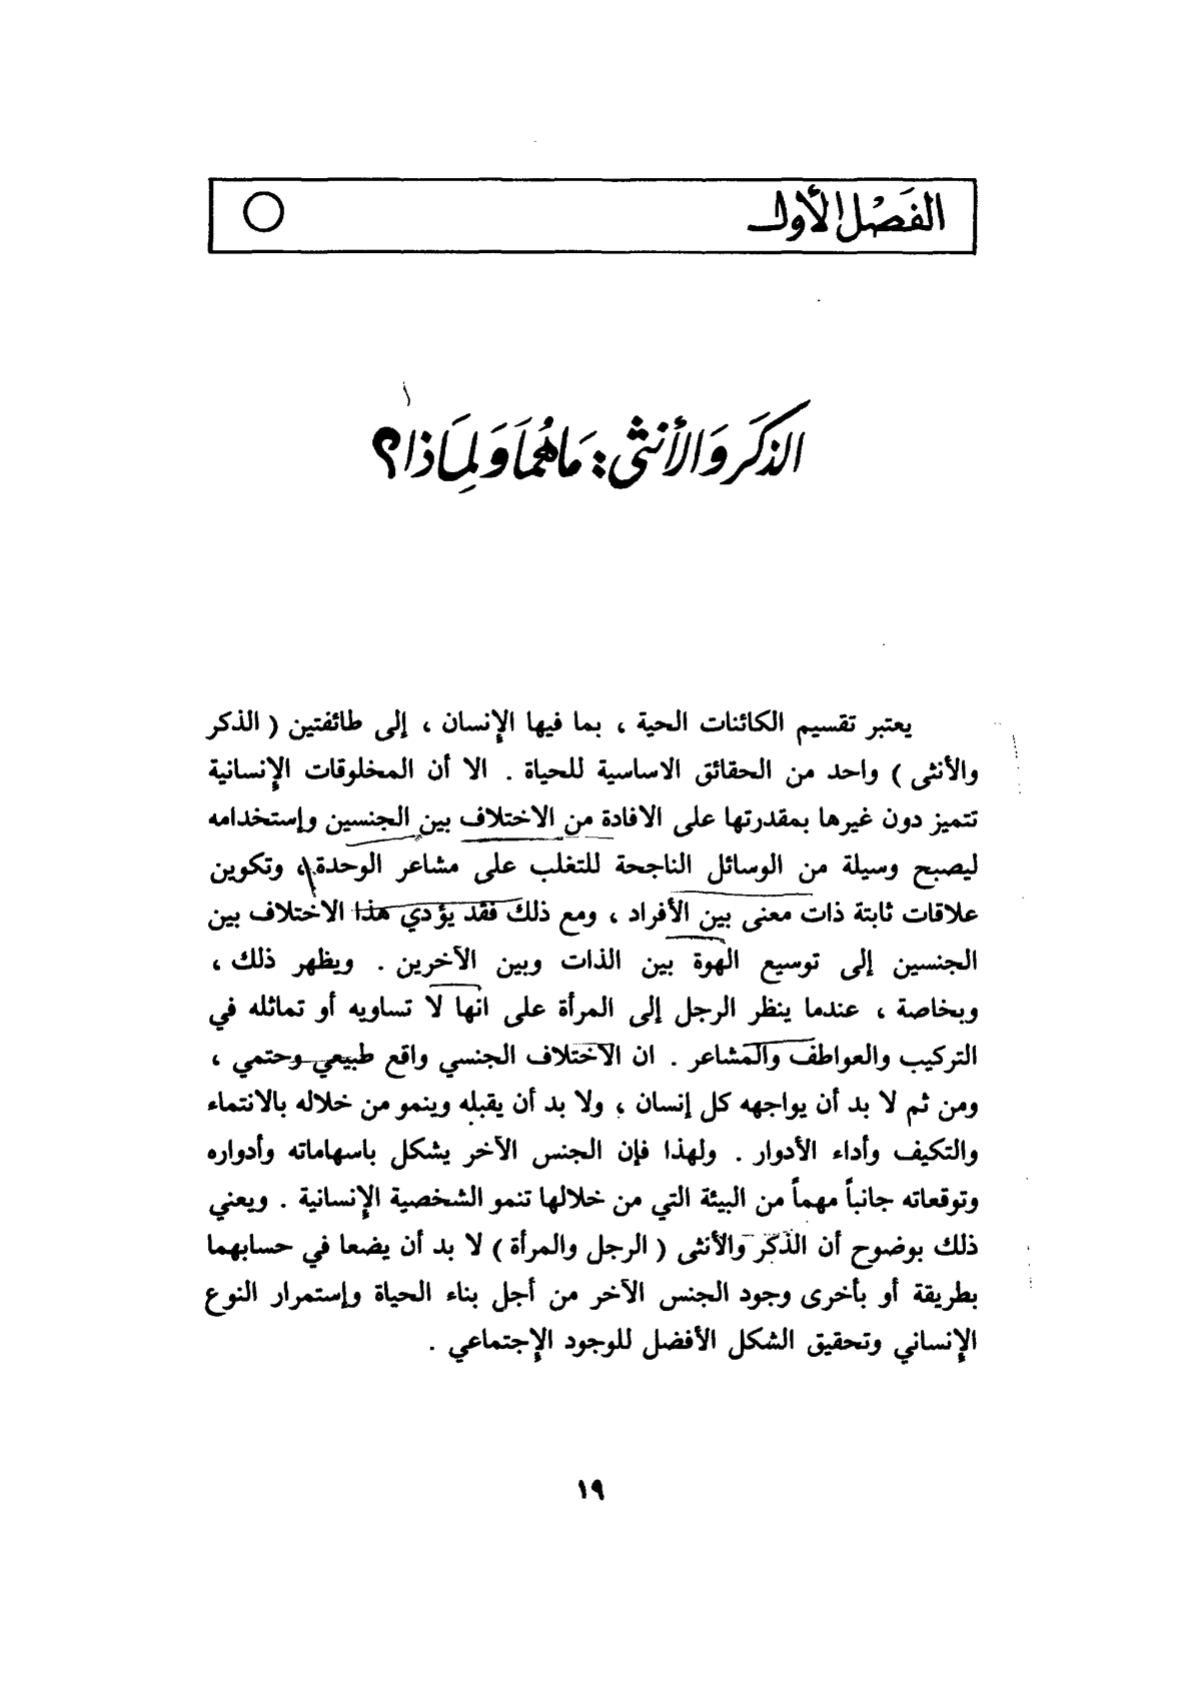 الفَصْل الأول
الذكَر وَالأنثى : مَا هُمَا وَلِمَاذا؟
يعتبر تقسيم الكائنات الحية ، بما فيها الإنسان ، إلى طائفتين ( الذكر
والأنثى ) واحد من الحقائق الاساسية للحياة . الا أن المخلوقات الإنسانية
تتميز دون غيرها بمقدرتها على الافادة من الاختلاف بين الجنسين وإستخدامه
ليصبح وسيلة من الوسائل الناجحة للتغلب على مشاعر الوحدة ، وتكوين
علاقات ثابتة ذات معنى بين الأفراد ، ومع ذلك فقد يؤدي هذا الاختلاف بين
الجنسين إلى توسيع الهوة بين الذات وبين الآخرين . ويظهر ذلك ،
وبخاصة ، عندما ينظر الرجل إلى المرأة على انها لا تساويه أو تماثله في
التركيب والعواطف والمشاعر . ان الاختلاف الجنسي واقع طبيعي وحتمي ،
ومن ثم لا بد أن يواجهه كل إنسان ، ولا بد أن يقبله وينمو من خلاله بالانتماء
والتكيف وأداء الأدوار . ولهذا فإن الجنس الآخر يشكل باسهاماته وأدواره
وتوقعاته جانباً مهماً من البيئة التي من خلالها تنمو الشخصية الإنسانية . ويعني
ذلك بوضوح أن الذكر والأنثى ( الرجل والمرأة ) لا بد أن يضعا في حسابهما
بطريقة أو بأخرى وجود الجنس الآخر من أجل بناء الحياة وإستمرار النوع
الإنساني وتحقيق الشكل الأفضل للوجود الإجتماعي .
١٩